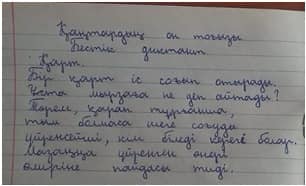 Қаңтардың он тоғызы
Бестік диктант.
Қарт.
Бір қарт іс соғып отырады.
Ұста мырзаға не деп айтады?
Төрем, қарап тұрғанша,
тым болмаса шеге соғуды
үйренсеңіш, кім біледі керегі болар.
Мазаққа үйренген өнері
өміріне пайдасы тиді.